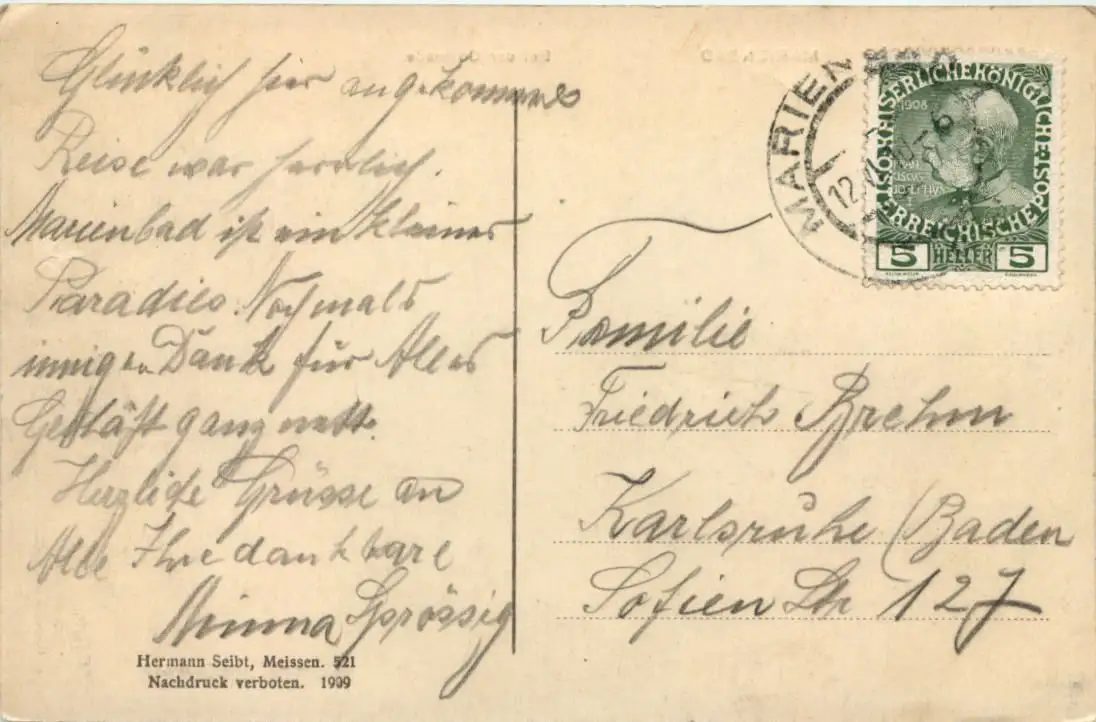 Glücklich hier angekommen
Reise war herrlich.
Marienbad ist ein kleines
Paradies. Nochmals
innigen Dank für Alles
Geschäft ganz nett.
Herzliche Grüsse an
Alle Ihre dankbare
Minna Sprössig
Hermann Seibt, Meissen. 521
Nachdruck verboten. 1909
MARIENBAD
12
KAISERLICHE KÖNIGLICHE ÖSTERREICHISCHE POST
1908
5 HELLER 5
Familie
Friedrich Brehm
Karlsruhe (Baden
Sofien Str 127